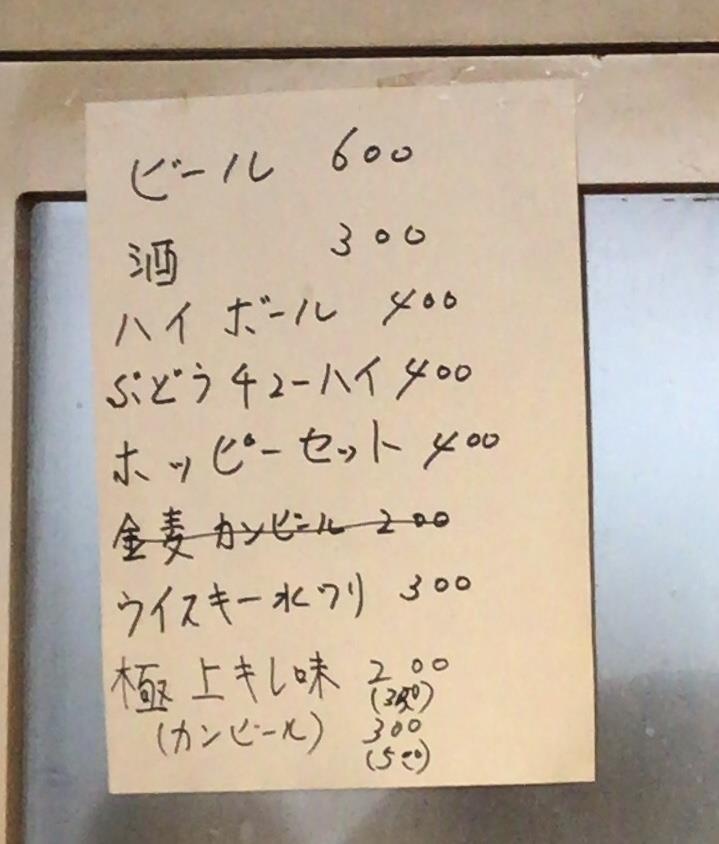 ビール 600
酒 300
ハイボール 400
ぶどうチューハイ 400
ホッピーセット 400
金麦 カンビール 200
ウイスキー水ワリ 300
極上キレ味 200
(350)
(カンビール) 300
(500)